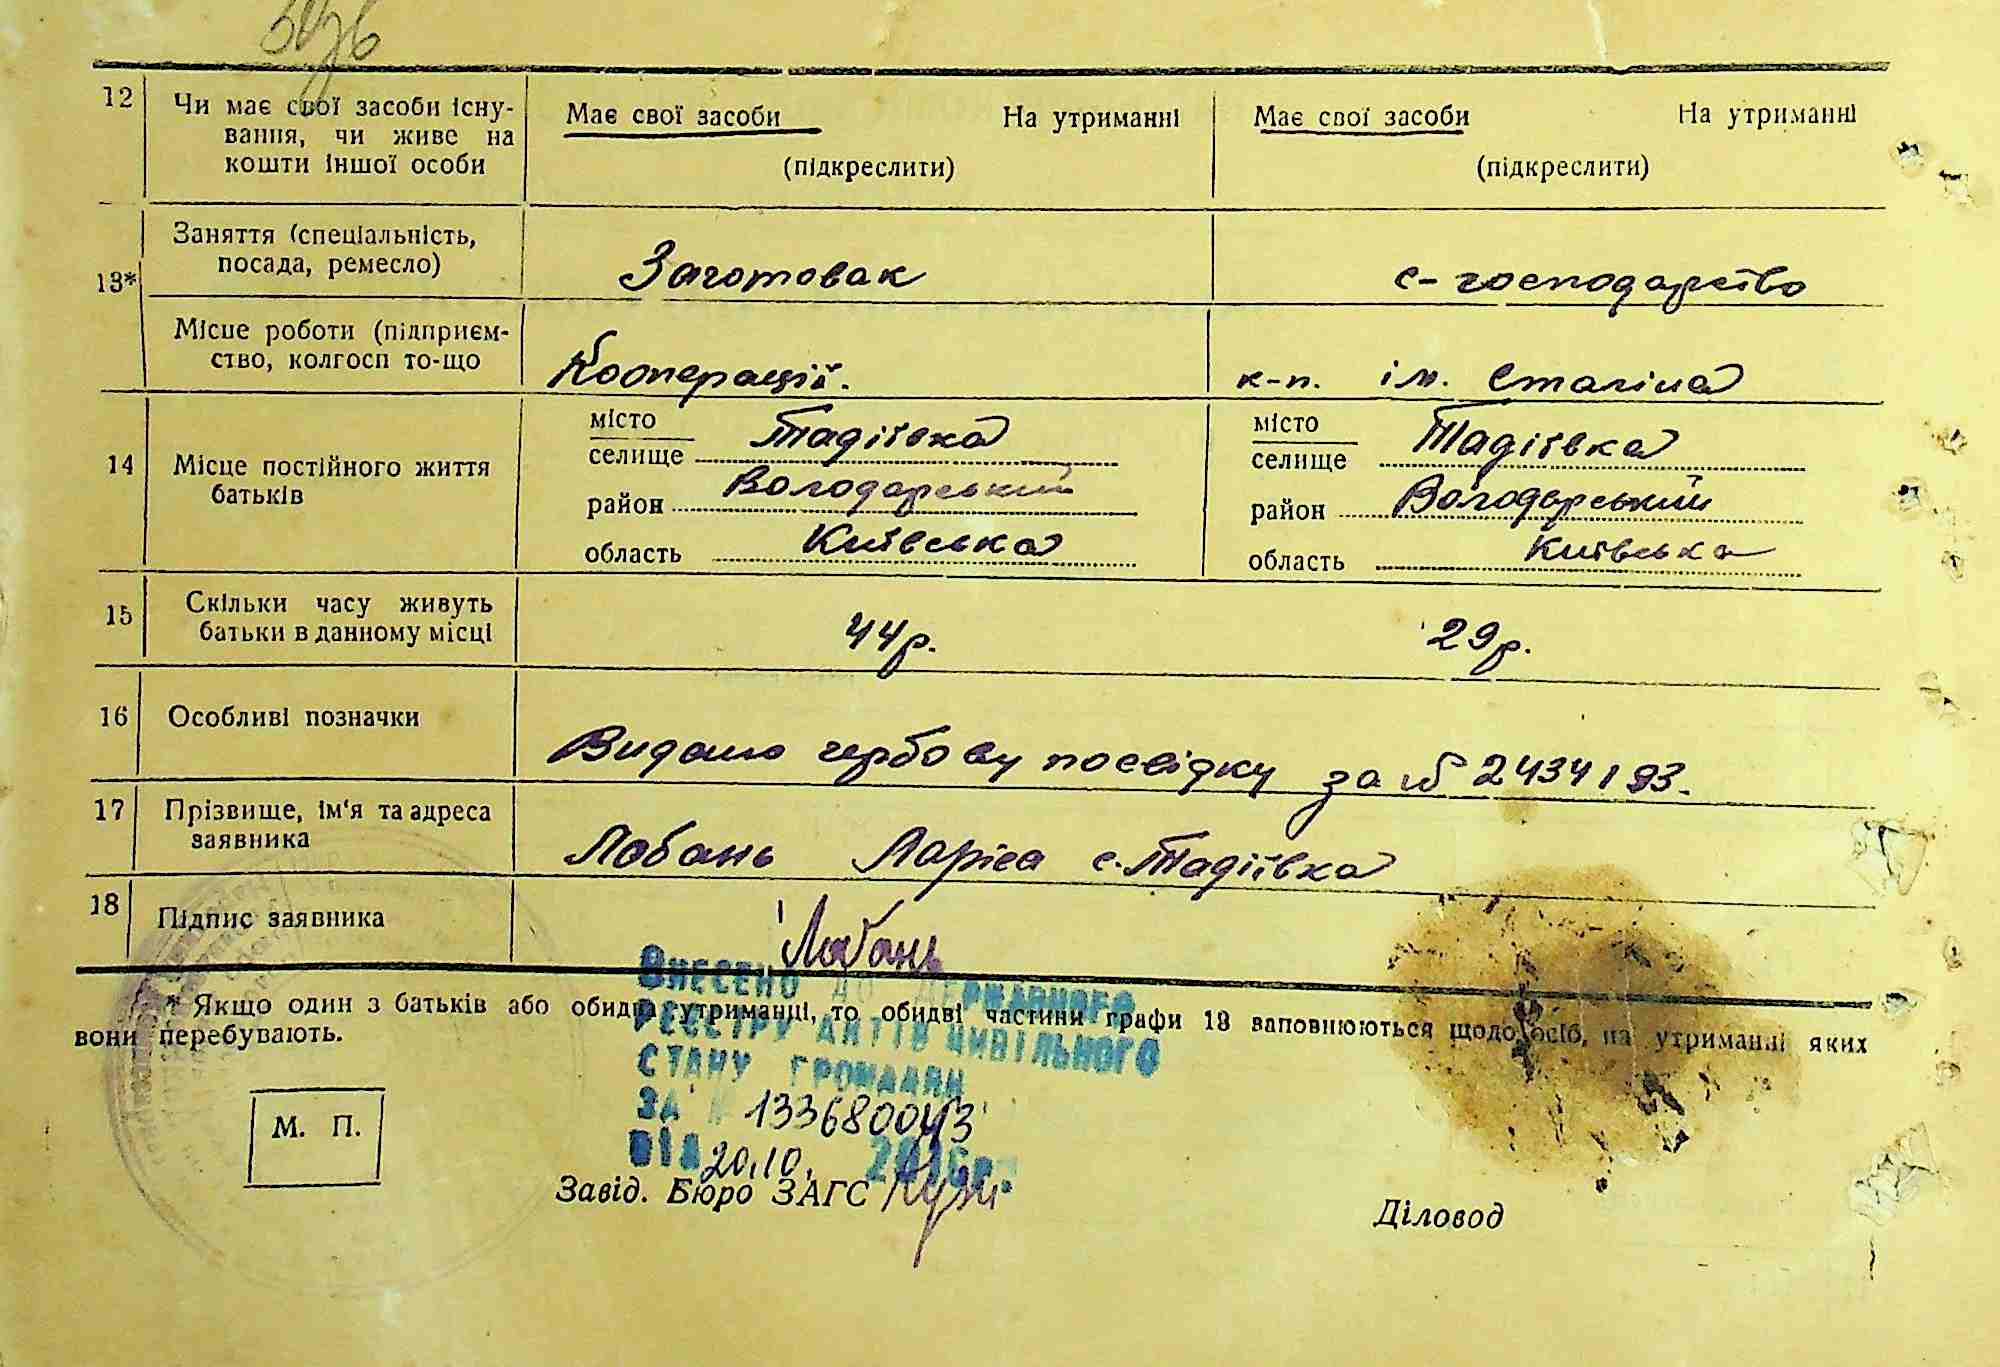 12 Чи має свої засоби існу- Має свої засоби На утриманні Має свої засоби На утриманні
вання, чи живе на
кошти іншої особи (підкреслити) (підкреслити)
13* Заняття (спеціальність,
посада, ремесло) Заготовак с-господарство
Місце роботи (підприєм-
ство, колгосп то-що Кооперації. к-п. ім. Сталіна
14 Місце постійного життя
батьків
місто
селище Тадіївка
район Володарський
область Київська
місто
селище Тадіївка
район Володарський
область Київська
15 Скільки часу живуть
батьки в данному місці 44р. 29р.
16 Особливі позначки
Видано гербову посвідку за № 2434193.
17 Прізвище, ім'я та адреса
заявника Лобань Ларіса с. Тадіївка
18 Підпис заявника Лобань
* Якщо один з батьків або обидва утриманці, то обидві частини графи 13 заповнюються щодо осіб, на утриманні яких
вони перебувають.
Внесено до Державного
реєстру актів цивільного
стану громадян
за № 13368004З
від 20.10. 2016р.
М. П.
Завід. Бюро ЗАГС
Діловод